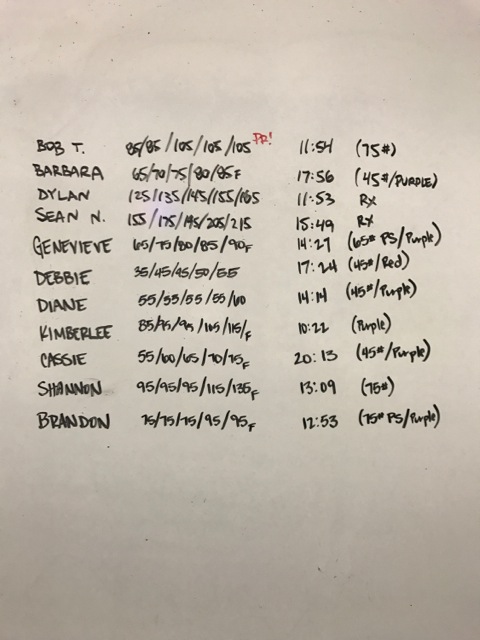 BOB T. 85/85/105/105/105 PR! 11:54 (75#)
BARBARA 65/70/75/80/85F 17:56 (45#/PURPLE)
DYLAN 125/135/145/155/165 11:53 RX
SEAN N. 155/175/195/205/215 15:49 RX
GENEVIEVE 65/75/80/85/90F 14:27 (65# PS/Purple)
DEBBIE 35/45/45/50/55 17:24 (45#/Red)
DIANE 55/55/55/55/60 14:14 (45#/Purple)
KIMBERLEE 85/95/95/105/115/F 10:22 (Purple)
CASSIE 55/60/65/70/75F 20:13 (45#/Purple)
SHANNON 95/95/95/115/135F 13:09 (75#)
BRANDON 75/75/75/95/95F 12:53 (75# PS/Purple)